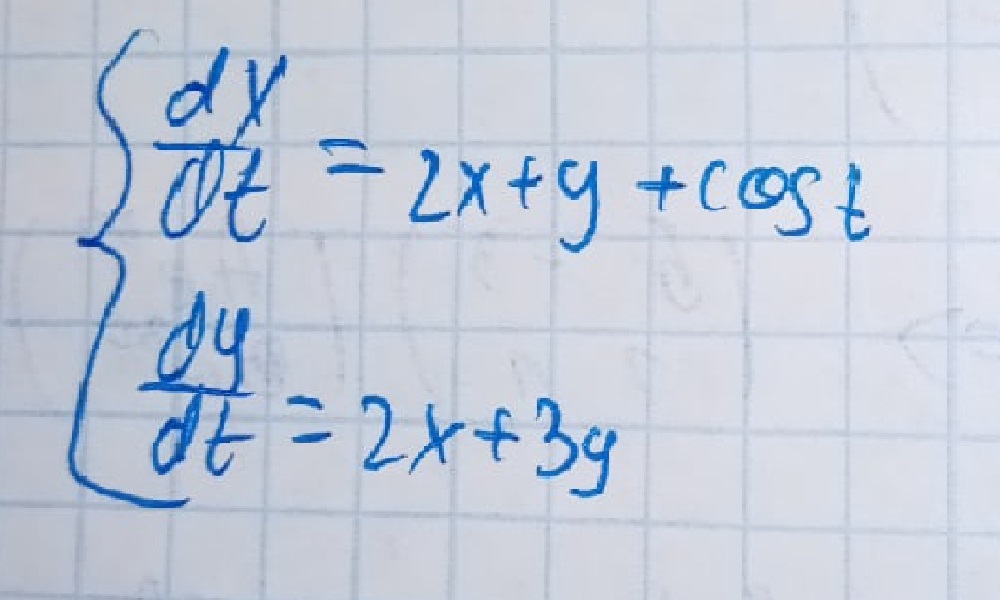 dx/dt = 2x+y +cos t
dy/dt = 2x+3y